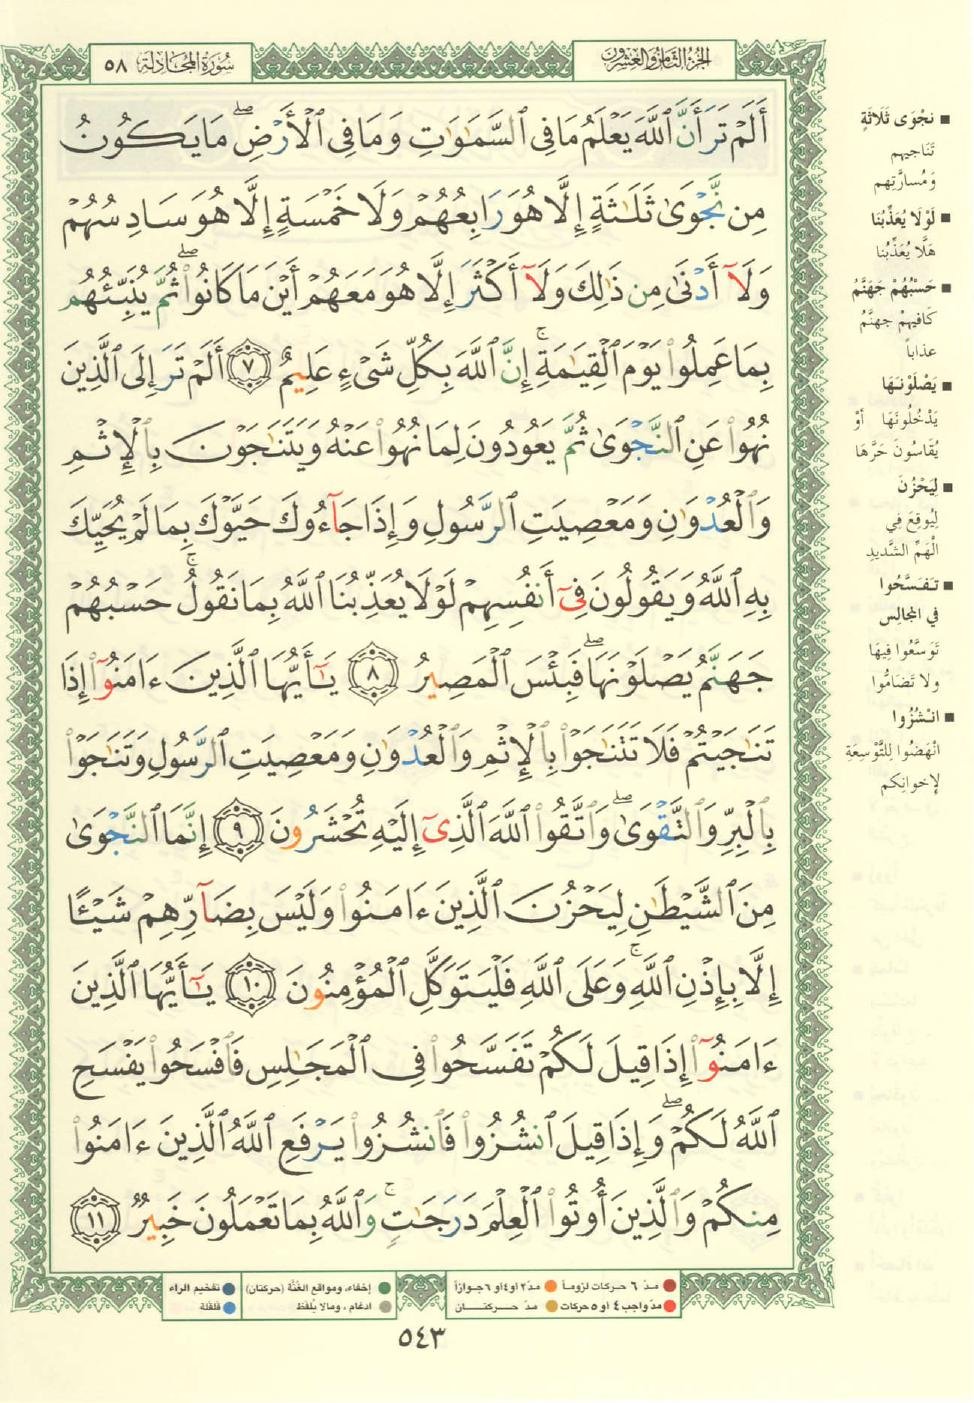 الجزء الثامن والعشرون
سورة المجادلة ٥٨
أَلَمْ تَرَ أَنَّ ٱللَّهَ يَعْلَمُ مَا فِى ٱلسَّمَٰوَٰتِ وَمَا فِى ٱلْأَرْضِ ۖ مَا يَكُونُ
مِن نَّجْوَىٰ ثَلَٰثَةٍ إِلَّا هُوَ رَابِعُهُمْ وَلَا خَمْسَةٍ إِلَّا هُوَ سَادِسُهُمْ
وَلَآ أَدْنَىٰ مِن ذَٰلِكَ وَلَآ أَكْثَرَ إِلَّا هُوَ مَعَهُمْ أَيْنَ مَا كَانُوا۟ ۖ ثُمَّ يُنَبِّئُهُم
بِمَا عَمِلُوا۟ يَوْمَ ٱلْقِيَٰمَةِ ۚ إِنَّ ٱللَّهَ بِكُلِّ شَىْءٍ عَلِيمٌ ٧ أَلَمْ تَرَ إِلَى ٱلَّذِينَ
نُهُوا۟ عَنِ ٱلنَّجْوَىٰ ثُمَّ يَعُودُونَ لِمَا نُهُوا۟ عَنْهُ وَيَتَنَٰجَوْنَ بِٱلْإِثْمِ
وَٱلْعُدْوَٰنِ وَمَعْصِيَتِ ٱلرَّسُولِ وَإِذَا جَآءُوكَ حَيَّوْكَ بِمَا لَمْ يُحَيِّكَ
بِهِ ٱللَّهُ وَيَقُولُونَ فِىٓ أَنفُسِهِمْ لَوْلَا يُعَذِّبُنَا ٱللَّهُ بِمَا نَقُولُ ۚ حَسْبُهُمْ
جَهَنَّمُ يَصْلَوْنَهَا ۖ فَبِئْسَ ٱلْمَصِيرُ ٨ يَٰٓأَيُّهَا ٱلَّذِينَ ءَامَنُوٓا۟ إِذَا
تَنَٰجَيْتُمْ فَلَا تَتَنَٰجَوْا۟ بِٱلْإِثْمِ وَٱلْعُدْوَٰنِ وَمَعْصِيَتِ ٱلرَّسُولِ وَتَنَٰجَوْا۟
بِٱلْبِرِّ وَٱلتَّقْوَىٰ ۖ وَٱتَّقُوا۟ ٱللَّهَ ٱلَّذِىٓ إِلَيْهِ تُحْشَرُونَ ٩ إِنَّمَا ٱلنَّجْوَىٰ
مِنَ ٱلشَّيْطَٰنِ لِيَحْزُنَ ٱلَّذِينَ ءَامَنُوا۟ وَلَيْسَ بِضَآرِّهِمْ شَيْـًٔا
إِلَّا بِإِذْنِ ٱللَّهِ ۚ وَعَلَى ٱللَّهِ فَلْيَتَوَكَّلِ ٱلْمُؤْمِنُونَ ١٠ يَٰٓأَيُّهَا ٱلَّذِينَ
ءَامَنُوٓا۟ إِذَا قِيلَ لَكُمْ تَفَسَّحُوا۟ فِى ٱلْمَجَٰلِسِ فَٱفْسَحُوا۟ يَفْسَحِ
ٱللَّهُ لَكُمْ ۖ وَإِذَا قِيلَ ٱنشُزُوا۟ فَٱنشُزُوا۟ يَرْفَعِ ٱللَّهُ ٱلَّذِينَ ءَامَنُوا۟
مِنكُمْ وَٱلَّذِينَ أُوتُوا۟ ٱلْعِلْمَ دَرَجَٰتٍ ۚ وَٱللَّهُ بِمَا تَعْمَلُونَ خَبِيرٌ ١١
■ نَجْوَى ثَلَاثَةٍ
تَنَاجِيهِم
وَمُسارَّتِهِم
■ لَوْلَا يُعَذِّبُنَا
هَلَّا يُعَذِّبُنا
■ حَسْبُهُمْ جَهَنَّمُ
كَافِيهِمْ جهنَّمُ
عذاباً
■ يَصْلَوْنَهَا
يَدْخُلُونَهَا أوْ
يُقَاسُونَ حَرَّهَا
■ لِيَحْزُنَ
لِيُوقِعَ فِي
الْهَمِّ الشَّدِيدِ
■ تَفَسَّحُوا
فِي المَجالِسِ
تَوَسَّعُوا فِيهَا
ولا تَضَامُّوا
■ انْشُزُوا
انْهَضُوا لِلتَّوْسِعَةِ
لإخوانِكم
مدّ ٦ حركات لزوماً مدّ٢ او٤او ٦جوازاً
مدّ واجب ٤ او ٥ حركات مدّ حركتان
إخفاء، ومواقع الغُنَّة (حركتان) تفخيم الراء
ادغام، ومالا يُلفظ قلقلة
٥٤٣